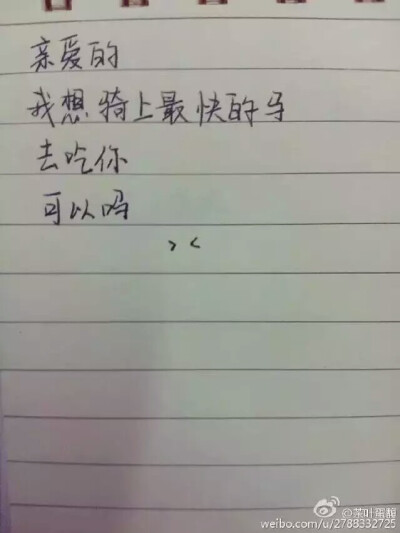 亲爱的
我想骑上最快的马
去吃你
可以吗
> <
@茶叶蛋靓
weibo.com/u/2788332725